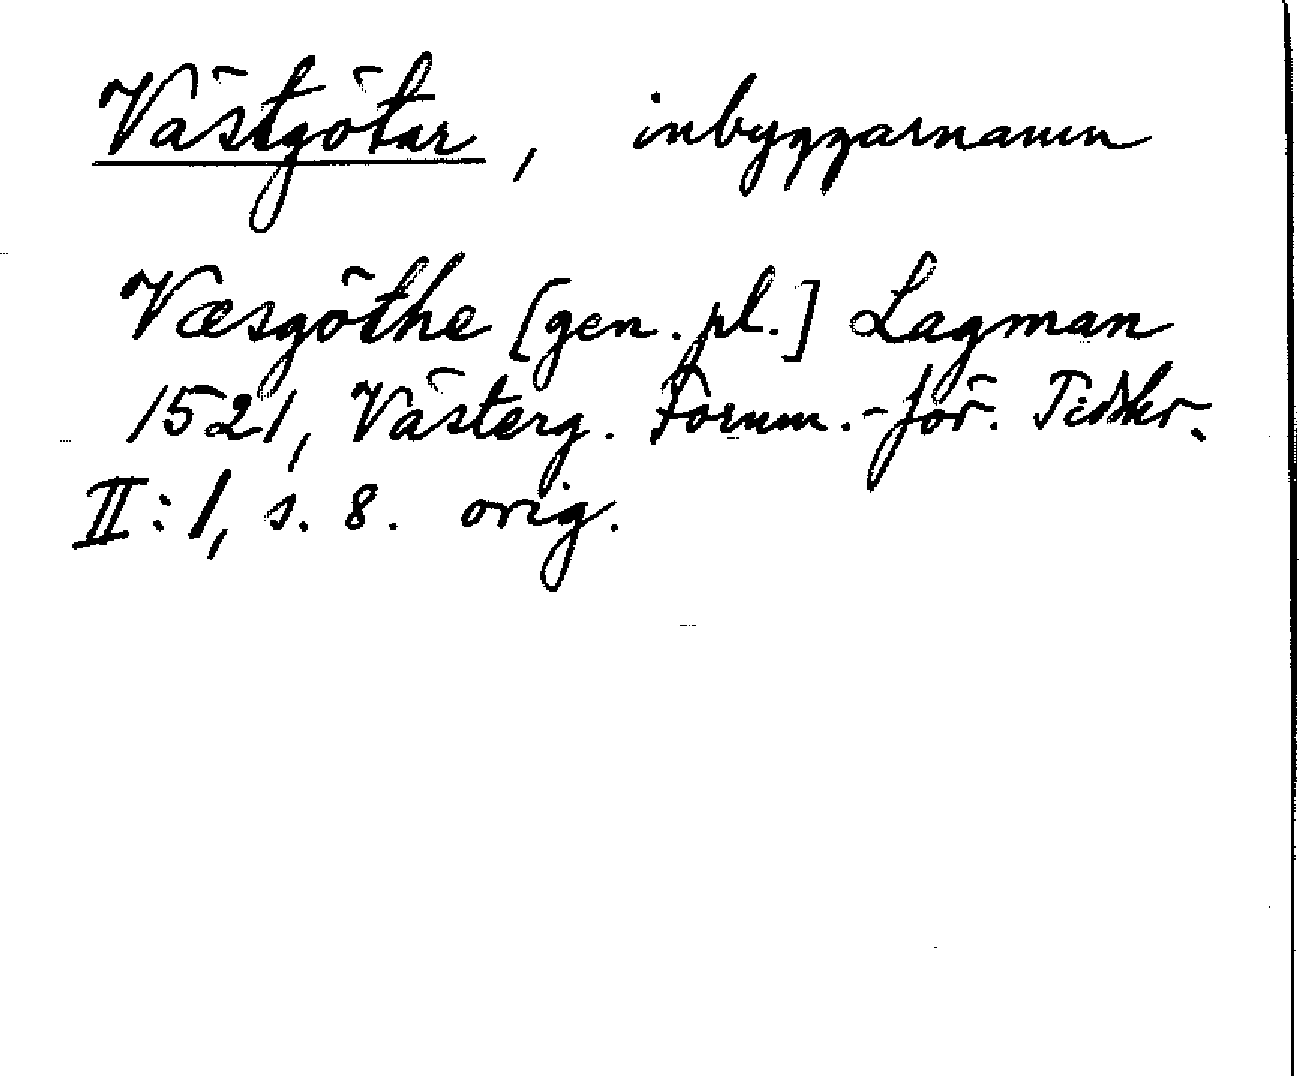 Västgötar, inbyggarnamn
Væsgöthe [gen. pl.] Lagman
1521, Västerg. Fornm.-för. Tidskr.
II: 1, s. 8. orig.